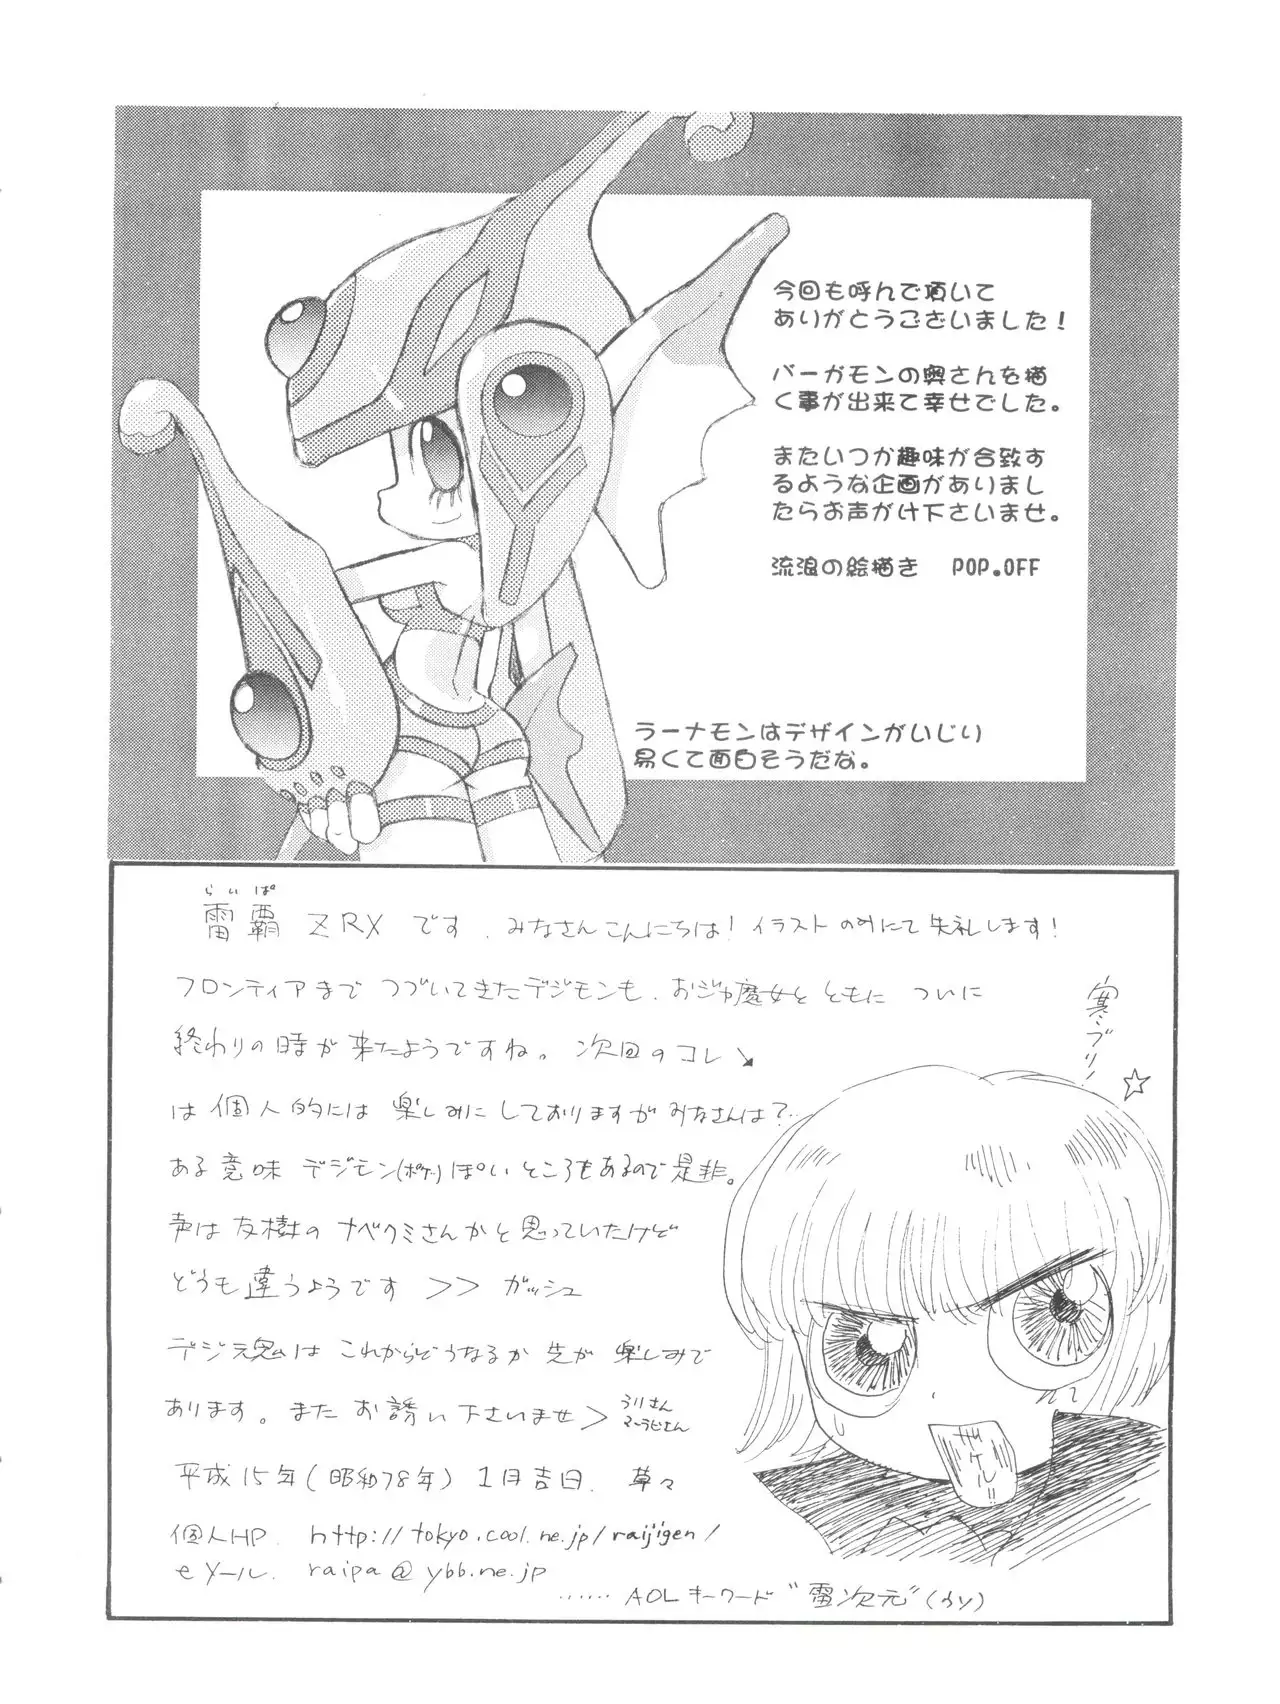 今回も呼んで頂いて
ありがとうございました！
バーガモンの奥さんを描
く事が出来て幸せでした。
またいつか趣味が合致す
るような企画がありまし
たらお声がけ下さいませ。
流浪の絵描き POP.OFF
ラーナモンはデザインがいじり
易くて面白そうだな。
らいぱ
雷覇 ZRX です．みなさんこんにちは！イラストのみにて失礼します！
フロンティアまで つづいてきたデジモンも、おジャ魔女と ともに ついに
終わりの時が来たようですね。次回のコレ↘
は個人的には 楽しみにしておりますがみなさんは？…
ある意味 デジモン(ポケ)ぽいところもあるので是非。
声は友樹の ナベクミさんかと思っていたけど
どうも違うようです >> ガッシュ
デジ魂は これからどうなるか 先が 楽しみで
あります。また お誘い下さいませ>
うりさん
マーラビさん
平成15年(昭和78年) 1月吉日． 草々
個人HP． http://tokyo.cool.ne.jp/raijigen/
eメール． raipa@ybb.ne.jp
…… AOLキーワード"雷次元"(うソ)
寒ブリ！
☆
ザケル!!